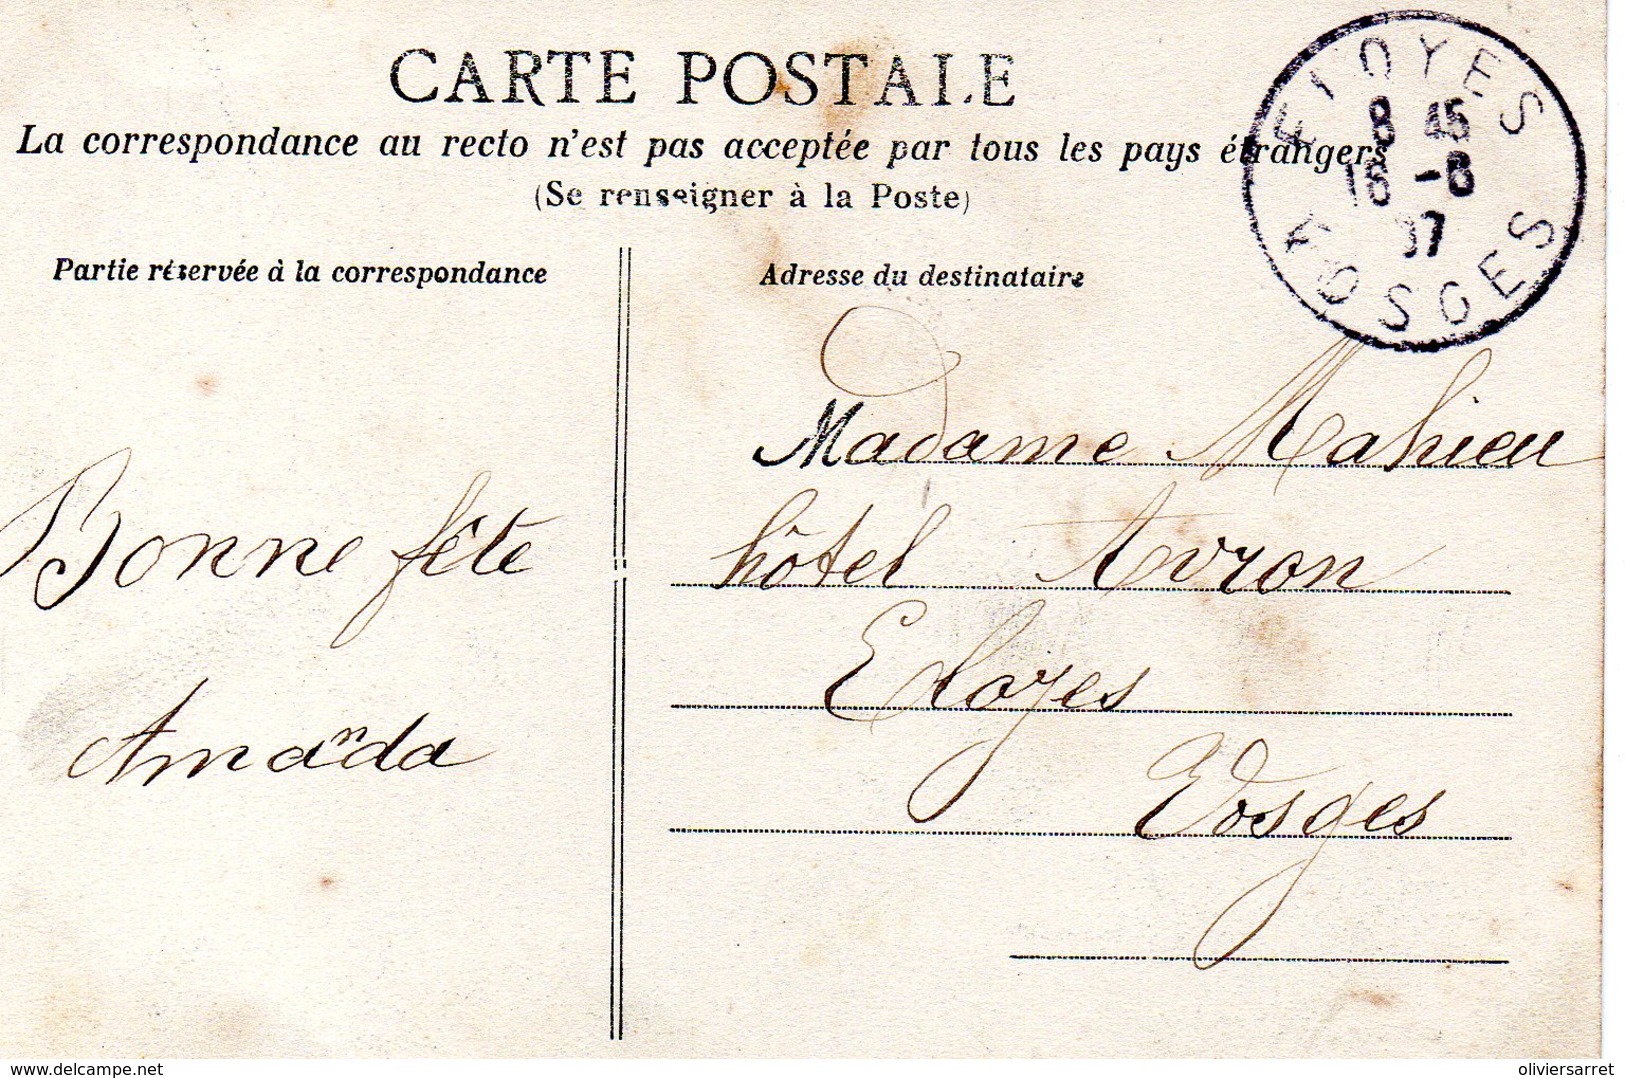 CARTE POSTALE
La correspondance au recto n'est pas acceptée par tous les pays étrangers
(Se renseigner à la Poste)
ELOYES
8 45
16 -8
07
VOSGES
Partie réservée à la correspondance
Adresse du destinataire
Bonne fête
Amanda
Madame Mahieu
hôtel Avron
Eloyes
Vosges
www.delcampe.net
oliviersarret